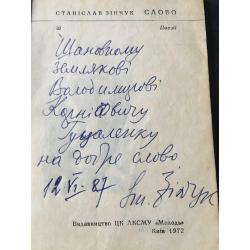 СТАНІСЛАВ ЗІНЧУК СЛОВО
Поезії
Шановному
Землякові
Володимирові
Корнійовичу
на добре слово
12 VI-87 Ст. Зінчук
Видавництво ЦК ЛКСМУ «Молодь»
Київ 1972